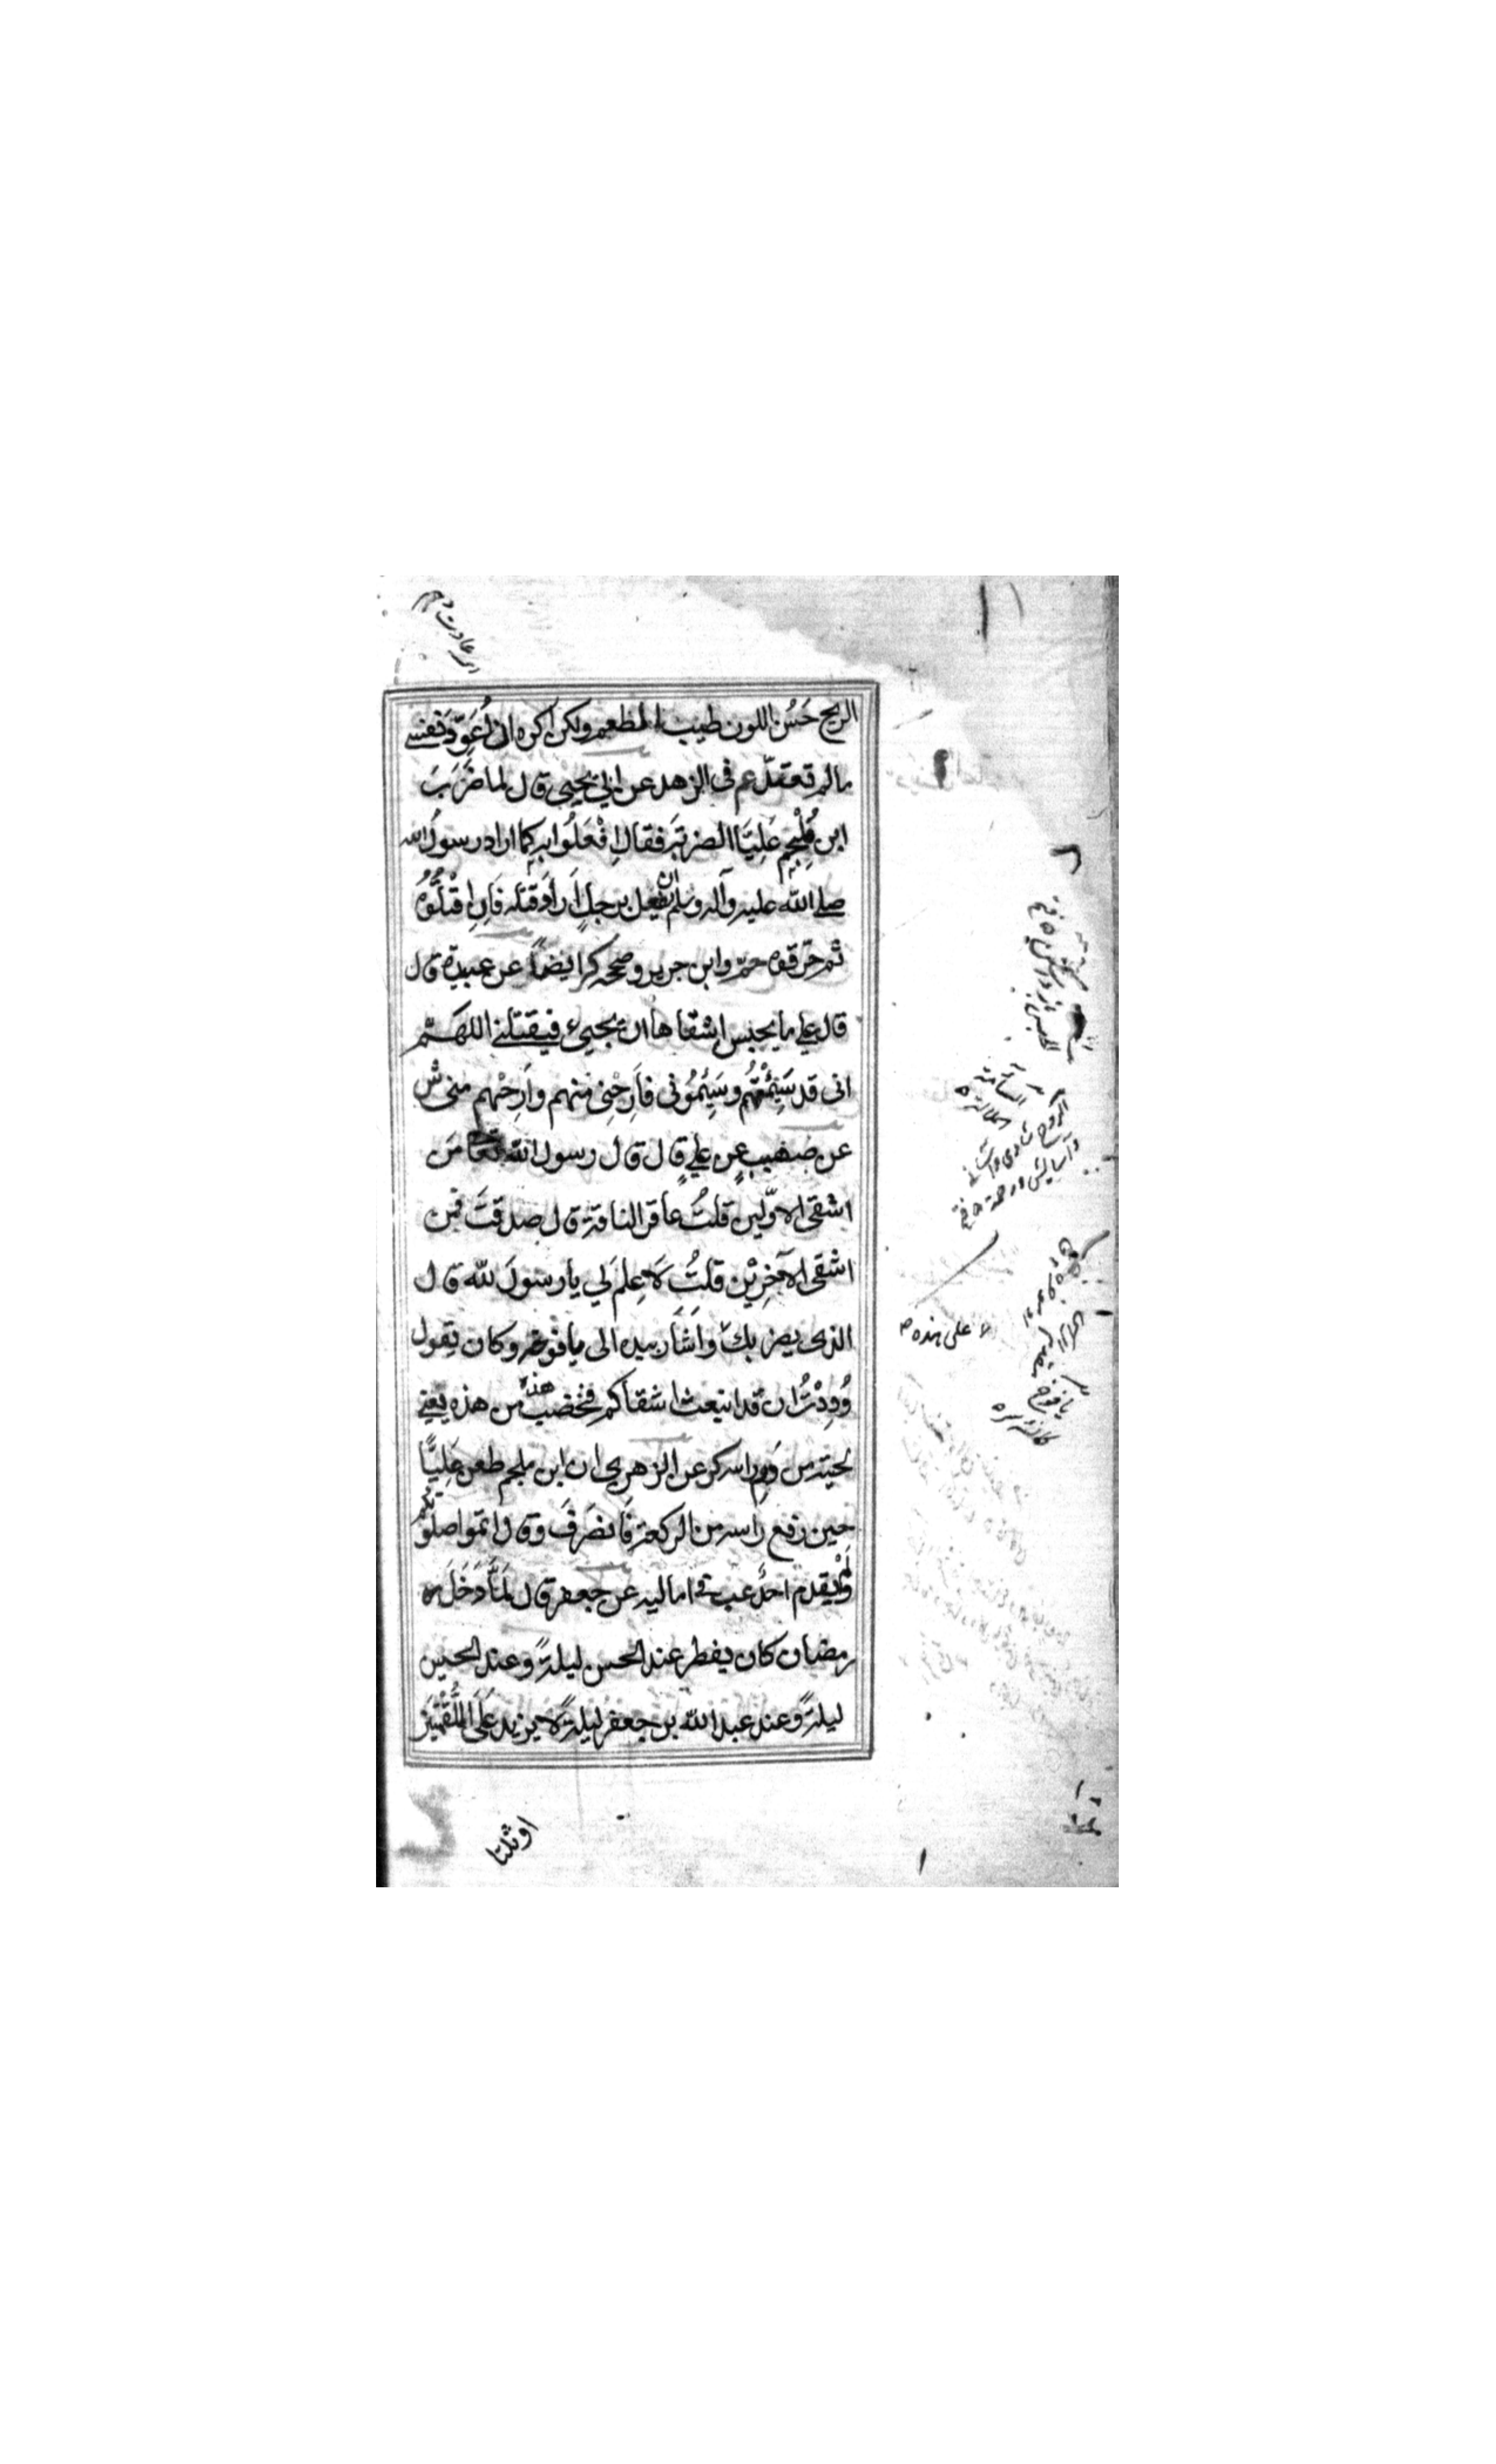 الريح حَسُن اللون طيب المطعم ولكن اكره ان اُعَوِّدَ نفسى
مالم تعتد عم فى الزهد عن ابى يحيى قال لما ضَرَبَ
ابن مُلْجِم عَلِيًّا الضربة فقال اِفْعَلُوا به كما اراد رسولُ الله
صلى الله عليه وآله وسلم ان يفعل برجلٍ اَرادَ قتله فَاِنِ اقْتُلُوهُ
ثم حرّقوه حم وابن جرير وصححه كر ايضاً عن عبيدة قال
قال علي ما يحبس اشقاها ان يجيئ فيقتلنى اللهَّم
انى قد سَئِمْتُهُم وسَئِمُونى فاَرِحْنِى منهم واَرِحْهم منى ش
عن صهيب عن علي قال قال رسول الله مَن
اشقى الاوّلين قلتُ عاقر الناقة قال صدقتَ فمن
اشقى الآخِرِيْن قلتُ لَاعِلمَ لي يا رسولَ لله قال
الذى يضربك واَشَارَ بيده الى يافوخه وكان يقول
وُدِدْتُ ان قد انبعث اشقاكم فخضب هذه من هذه يعنى
لحيته من دَمِ راسه كر عن الزهري ان ابن ملجم طعن عَلِيًّا
حين رفع راسه من الركعة فَانصَرفَ وقال اتموا صلوتكم
وَلَمْ يقدم احدٌ عب فى اماليه عن جعفر قال لَمَّا دَخَلَ
رمضان كان يفطر عند الحسن ليلةً وعند الحسين
ليلةً وعند عبد الله بن جعفر ليلةً لا يزيد عَلَى اللُّقْمَتَيْن
اوثلثا
على هذه
السآمة
يافوخ